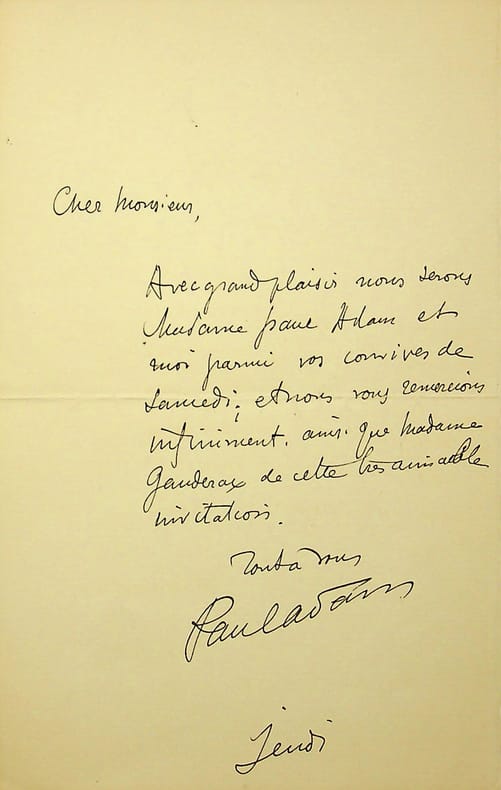 Cher Monsieur,
Avec grand plaisir nous serons
Madame Paul Adam et
moi parmi vos convives de
samedi; et nous vous remercions
infiniment. ainsi que Madame
Ganderax de cette très aimable
invitation.
Tout à vous
Paul Adam
Jeudi